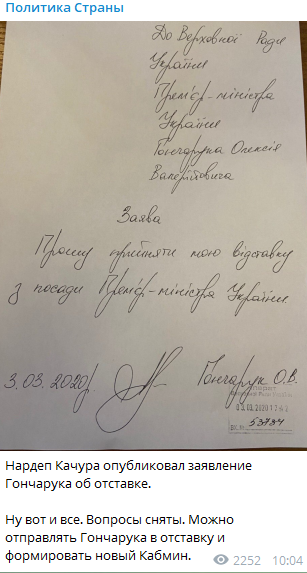 Политика Страны
До Верховної Ради
України
Прем'єр-міністра
України
Гончарука Олексія
Валерійовича
Заява
Прошу прийняти мою відставку
з посади Прем'єр-міністра України
3.03.2020р.
Гончарук О.В.
53734
Нардеп Качура опубликовал заявление
Гончарука об отставке.
Ну вот и все. Вопросы сняты. Можно
отправлять Гончарука в отставку и
формировать новый Кабмин.
2252 10:04